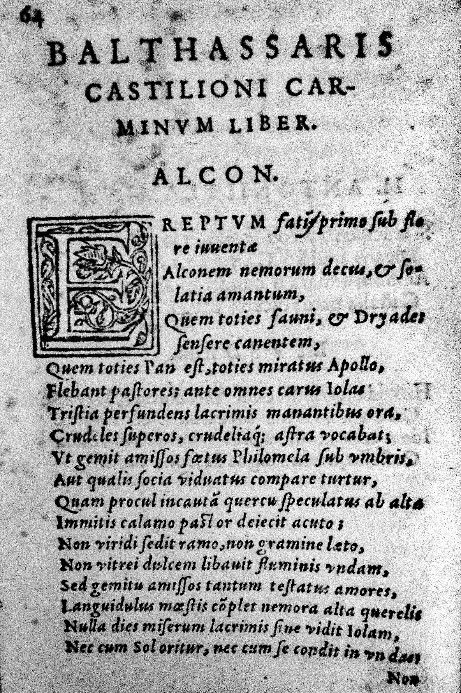 64
BALTHASSARIS
CASTILIONI CAR-
MINVM LIBER.
ALCON.
EREPTVM fatis primo sub flo
re iuuentæ
Alconem nemorum decus, & so-
latia amantum,
Quem toties fauni, & Dryades
sensere canentem,
Quem toties Pan est, toties miratus Apollo,
Flebant pastores; ante omnes carus Iolas
Tristia perfundens lacrimis manantibus ora,
Crudeles superos, crudeliaq; astra vocabat;
Vt gemit amissos fœtus Philomela sub vmbris,
Aut qualis socia viduatus compare turtur,
Quam procul incautã quercu speculatus ab alta
Immitis calamo pastor deiecit acuto:
Non viridi sedit ramo, non gramine læto,
Non vitrei dulcem libauit fluminis vndam,
Sed gemitu amissos tantum testatus amores,
Languidulus mæstis cõplet nemora alta querelis
Nulla dies miserum lacrimis sine vidit Iolam,
Nec cum Sol oritur, nec cum se condit in vndas;
Non